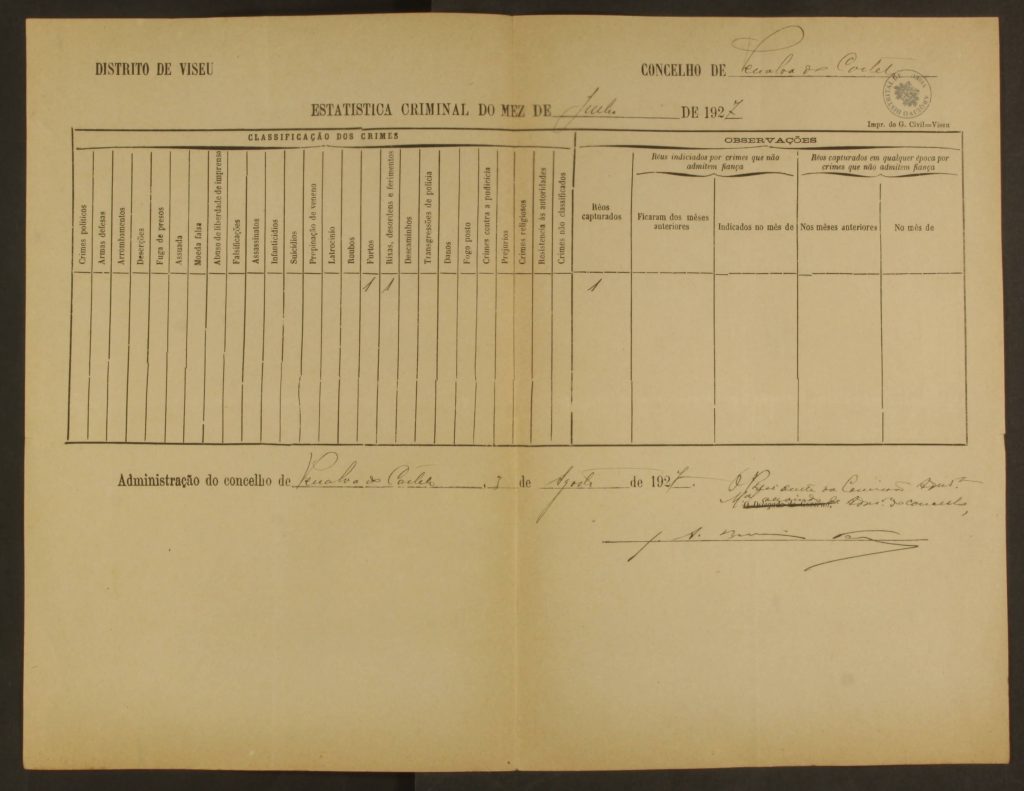 DISTRITO DE VISEU
CONCELHO DE Penalva do Castelo
ESTATISTICA CRIMINAL DO MEZ DE DE 1927
Impr. do G. Civil—Viseu
CLASSIFICAÇÃO DOS CRIMES
OBSERVAÇÕES
Crimes politicos
Armas defesas
Arrombamentos
Deserções
Fuga de presos
Assuada
Moeda falsa
Abuso de liberdade de imprensa
Falsificações
Assassinatos
Infanticidios
Suicidios
Propinação de veneno
Latrocinio
Roubos
Furtos
Rixas, desordens e ferimentos
Descaminhos
Transgressões de policia
Danos
Fogo posto
Crimes contra a pudicicia
Prejurios
Crimes religiosos
Resistencia ás autoridades
Crimes não classificados
Réos capturados
Réus indiciados por crimes que não admitem fiança
Ficaram dos mêses anteriores
Indicados no mês de
Réos capturados em qualquer época por crimes que não admitem fiança
Nos mêses anteriores
No mês de
1 1 1
Administração do concelho de Penalva do Castelo, 3 de Agosto de 1927.
O Presidente da Comissão
do concelho,